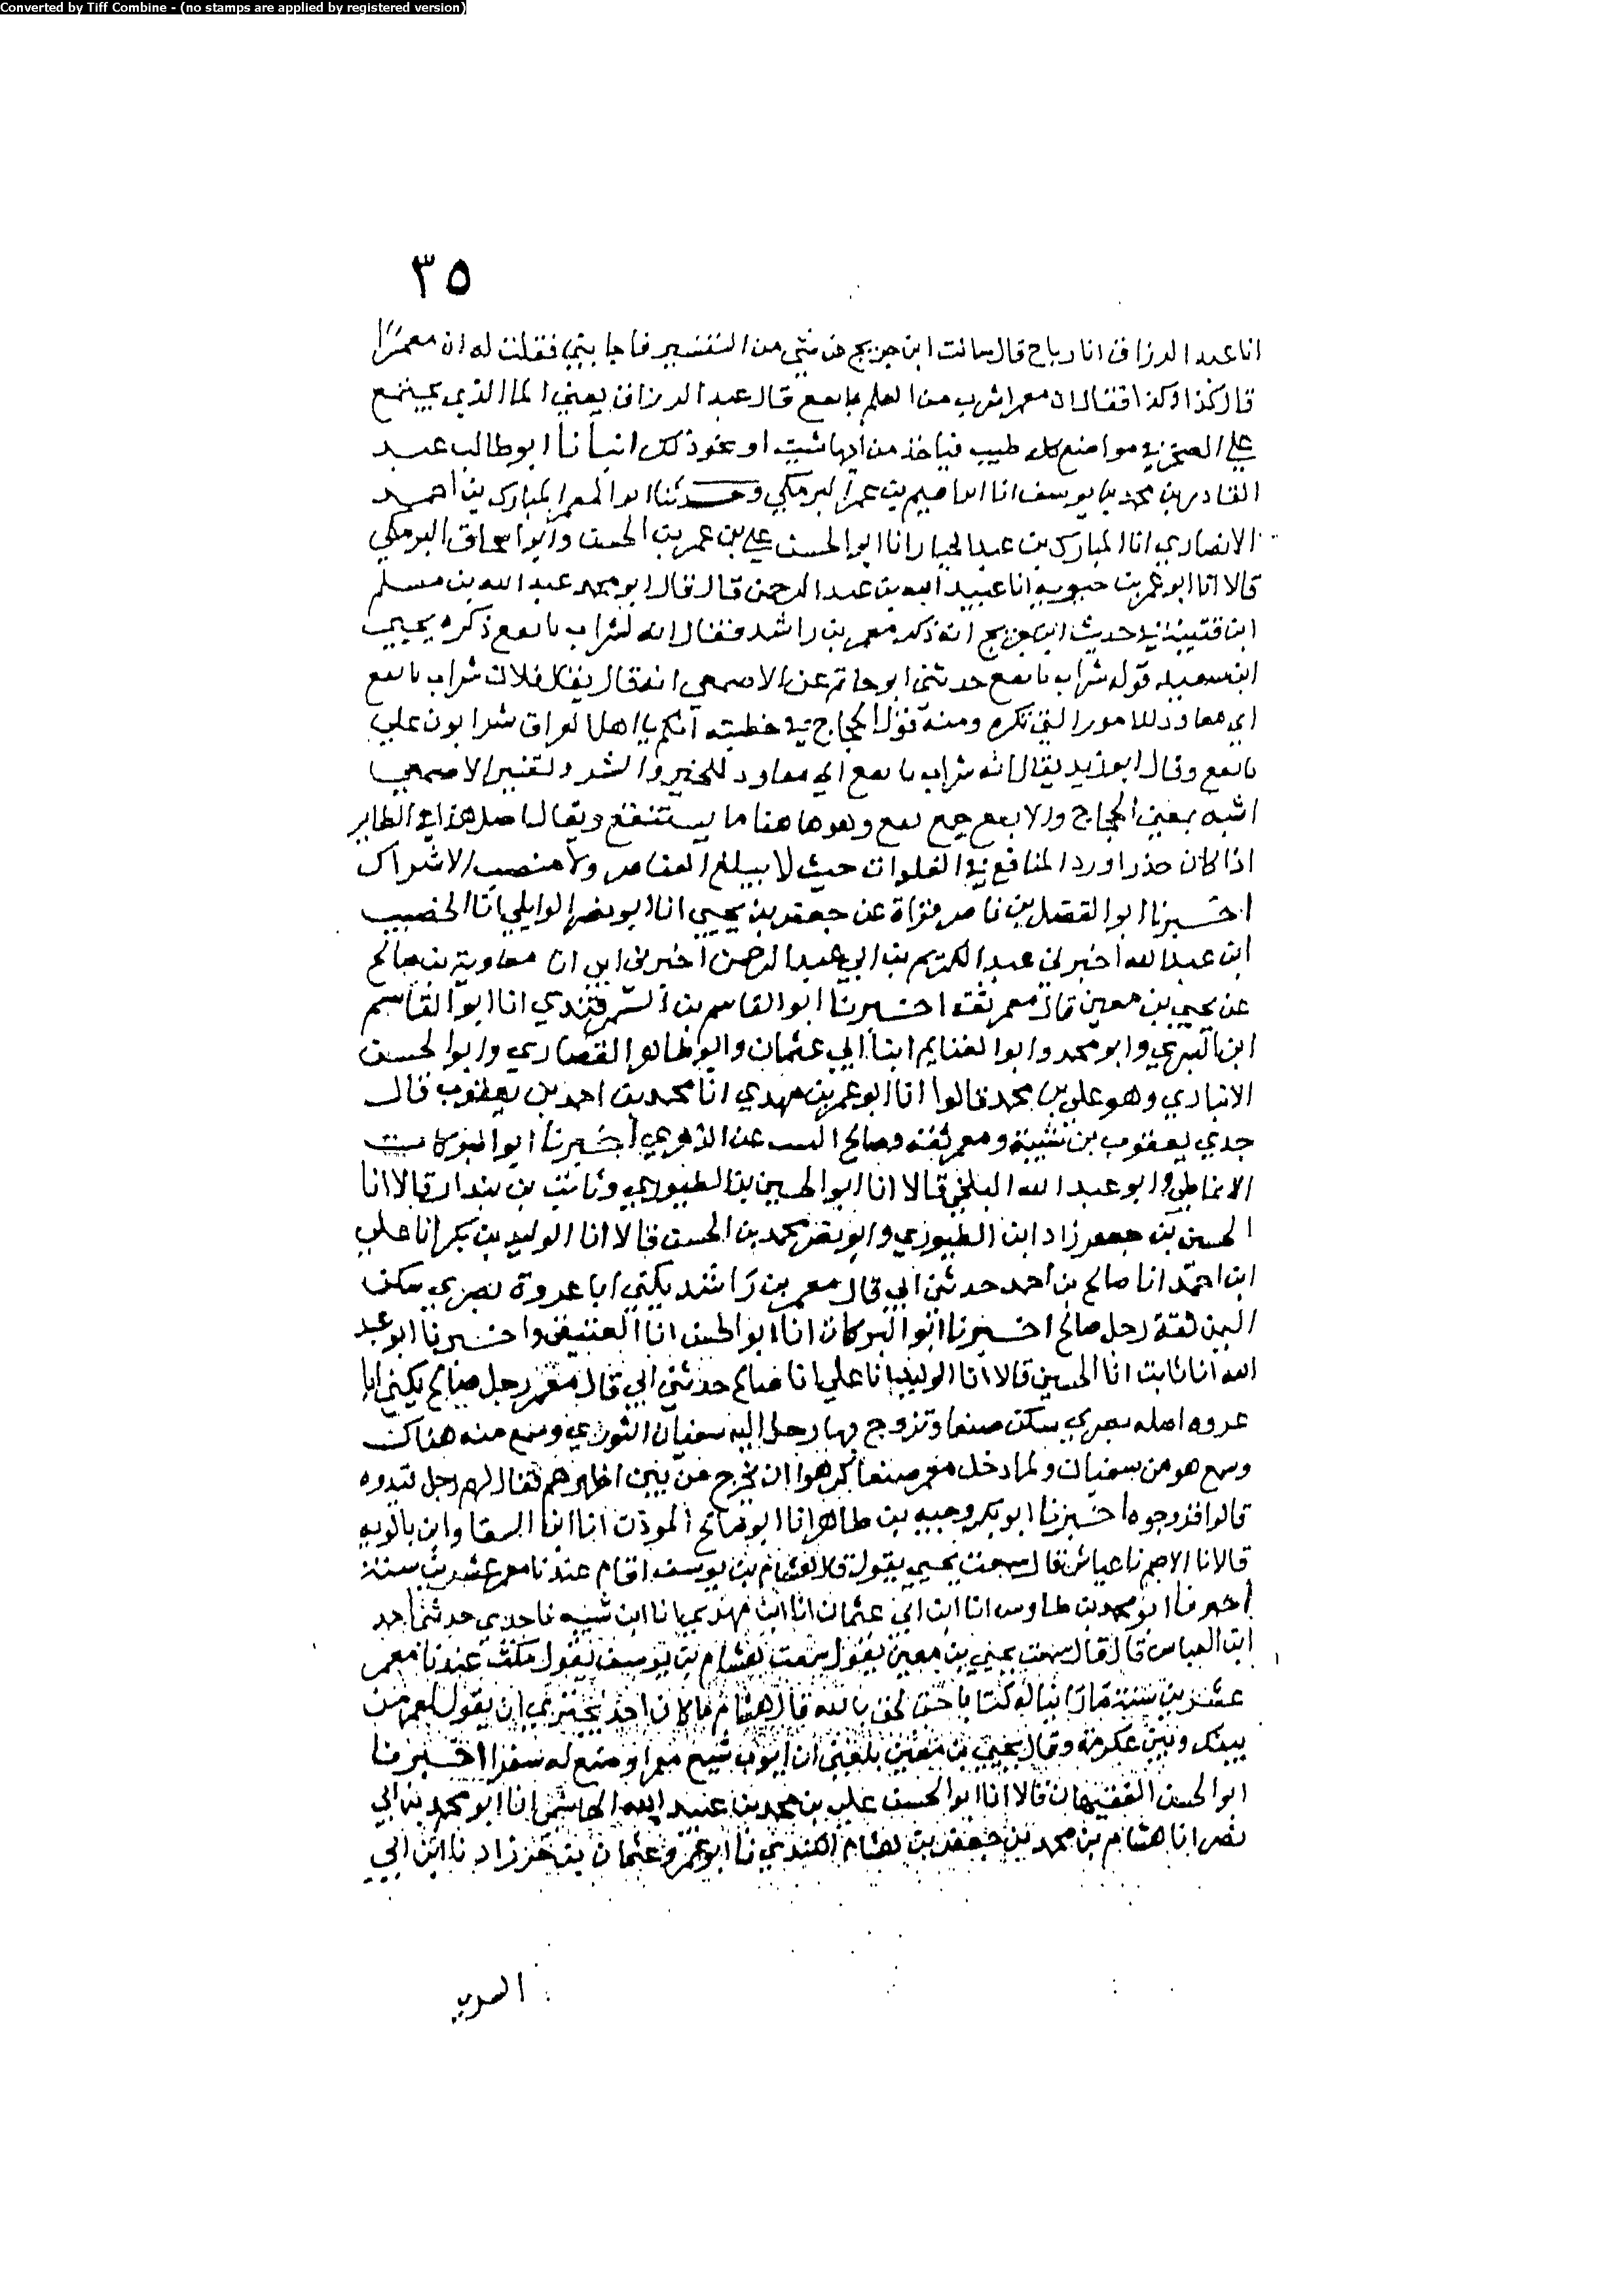 Converted by Tiff Combine - (no stamps are applied by registered version)
٣٥
انا عبد الرزاق انا رباح قال سالت ابن جريج عن شي من التفسير فاجابني فقلت له ان معمرا
قال كذا وكذا فقال ان معمرا شرب من العلم بانقع قال عبد الرزاق يعني الما الذي يجتمع
على الصخر في مواضع كله طيب فياخذ من ايها شيت او نحو ذلك انبأنا ابو طالب عبد
القادر بن محمد بن يوسف انا ابراهيم بن عمر البرمكي وحدثنا ابو المعمر المبارك بن احمد
الانصاري انا المبارك بن عبد الجبار انا ابو الحسن علي بن عمر بن الحسن وابو اسحاق البرمكي
قالا انا ابو عمر بن حيويه انا عبيد الله بن عبد الرحمن قال قال ابو محمد عبد الله بن مسلم
ابن قتيبة في حديث ابن جريج انه ذكر معمر بن راشد فقال انه لشراب بانقع ذكره يحيى
ابن سعيد قوله شراب بانقع حدثني ابو حاتم عن الاصمعي انه قال يقال فلان شراب بانقع
اي معاود للامور التي تكره ومنه قول الحجاج في خطبته انكم يا اهل العراق شرابون علي
بانقع وقال ابو زيد يقال انه شراب بانقع اي معاود للخير والشر وتفسير الاصمعي
اشبه بمعنى الحجاج والانقع جمع نقع وهو هاهنا ما يستنقع ويقال اصل هذا في الطاير
اذا كان حذرا ورد المناقع في الفلوات حيث لا يبلغ القناص ولا تنصب الاشراك
اخبرنا ابو الفضل بن ناصر قراة عن جعفر بن يحيى انا ابو نصر الوايلي انا الخصيب
ابن عبد الله اخبرني عبد الكريم بن ابي عبد الرحمن اخبرني ابي انا معاوية بن صالح
عن يحيى بن معين قال معمر ثقة اخبرنا ابو القاسم بن السمرقندي انا ابو القاسم
ابن البسري وابو محمد وابو الغنايم ابنا ابي عثمان وابو طاهر القصاري وابو الحسن
الانباري وهو علي بن محمد قالوا انا ابو عمر بن مهدي انا محمد بن احمد بن يعقوب قال
جدي يعقوب بن شيبة ومعمر ثقة وصالح الثبت عن الزهري اخبرنا ابو البركات
الانماطي وابو عبد الله البلخي قالا انا ابو الحسين بن الطيوري وثابت بن بندار قالا انا
الحسين بن جعفر زاد ابن الطيوري وابو نصر محمد بن الحسن قالا انا الوليد بن بكر انا علي
ابن احمد انا صالح بن احمد حدثني ابي قال معمر بن راشد يكنى ابا عروة بصري سكن
اليمن ثقة رجل صالح اخبرنا ابو البركات انا ابو الحسن انا العتيقي واخبرنا ابو عبد
الله انا ثابت انا الحسين قالا انا الوليد انا علي انا صالح حدثني ابي قال معمر رجل صالح يكنى ابا
عروه اصله بصري سكن صنعا وتزوج بها رحل اليه سفيان الثوري وسمع منه هناك
وسمع هو من سفيان ولما دخل معمر صنعا كرهوا ان يخرج من بين اظهرهم فقال لهم رجل قيدوه
قالوا فزوجوه اخبرنا ابو بكر وجيه بن طاهر انا ابو صالح الموذن انا ابنا السقا وابن بالويه
قالا نا الاصم نا عياش قال سمعت يحيى يقول قال هشام بن يوسف اقام عندنا معمر عشرين سنة
اخبرنا ابو محمد بن طاوس انا ابن ابي عثمان انا ابن مهدي انا ابن شيبه نا جدي حدثنا احمد
ابن العباس قال قال سمعت يحيى بن معين يقول سمعت هشام بن يوسف يقول مكث عندنا معمر
عشرين سنة ما راينا له كتابا حتى لحق بالله قال هشام ما كان احد يجتري ان يقول لمعمر من
بينك وبين عكرمة وقال يحيى بن معين بلغني ان ايوب شيع معمرا وصنع له سفرا اخبرنا
ابو الحسن الفقيهان قالا انا ابو الحسن علي بن محمد بن عبيد الله الهاشمي انا ابو محمد بن ابي
نصر انا هشام بن محمد بن جعفر بن هشام الكندي نا ابو عمرو عثمان بن خرزاد نا ابن ابي
السري